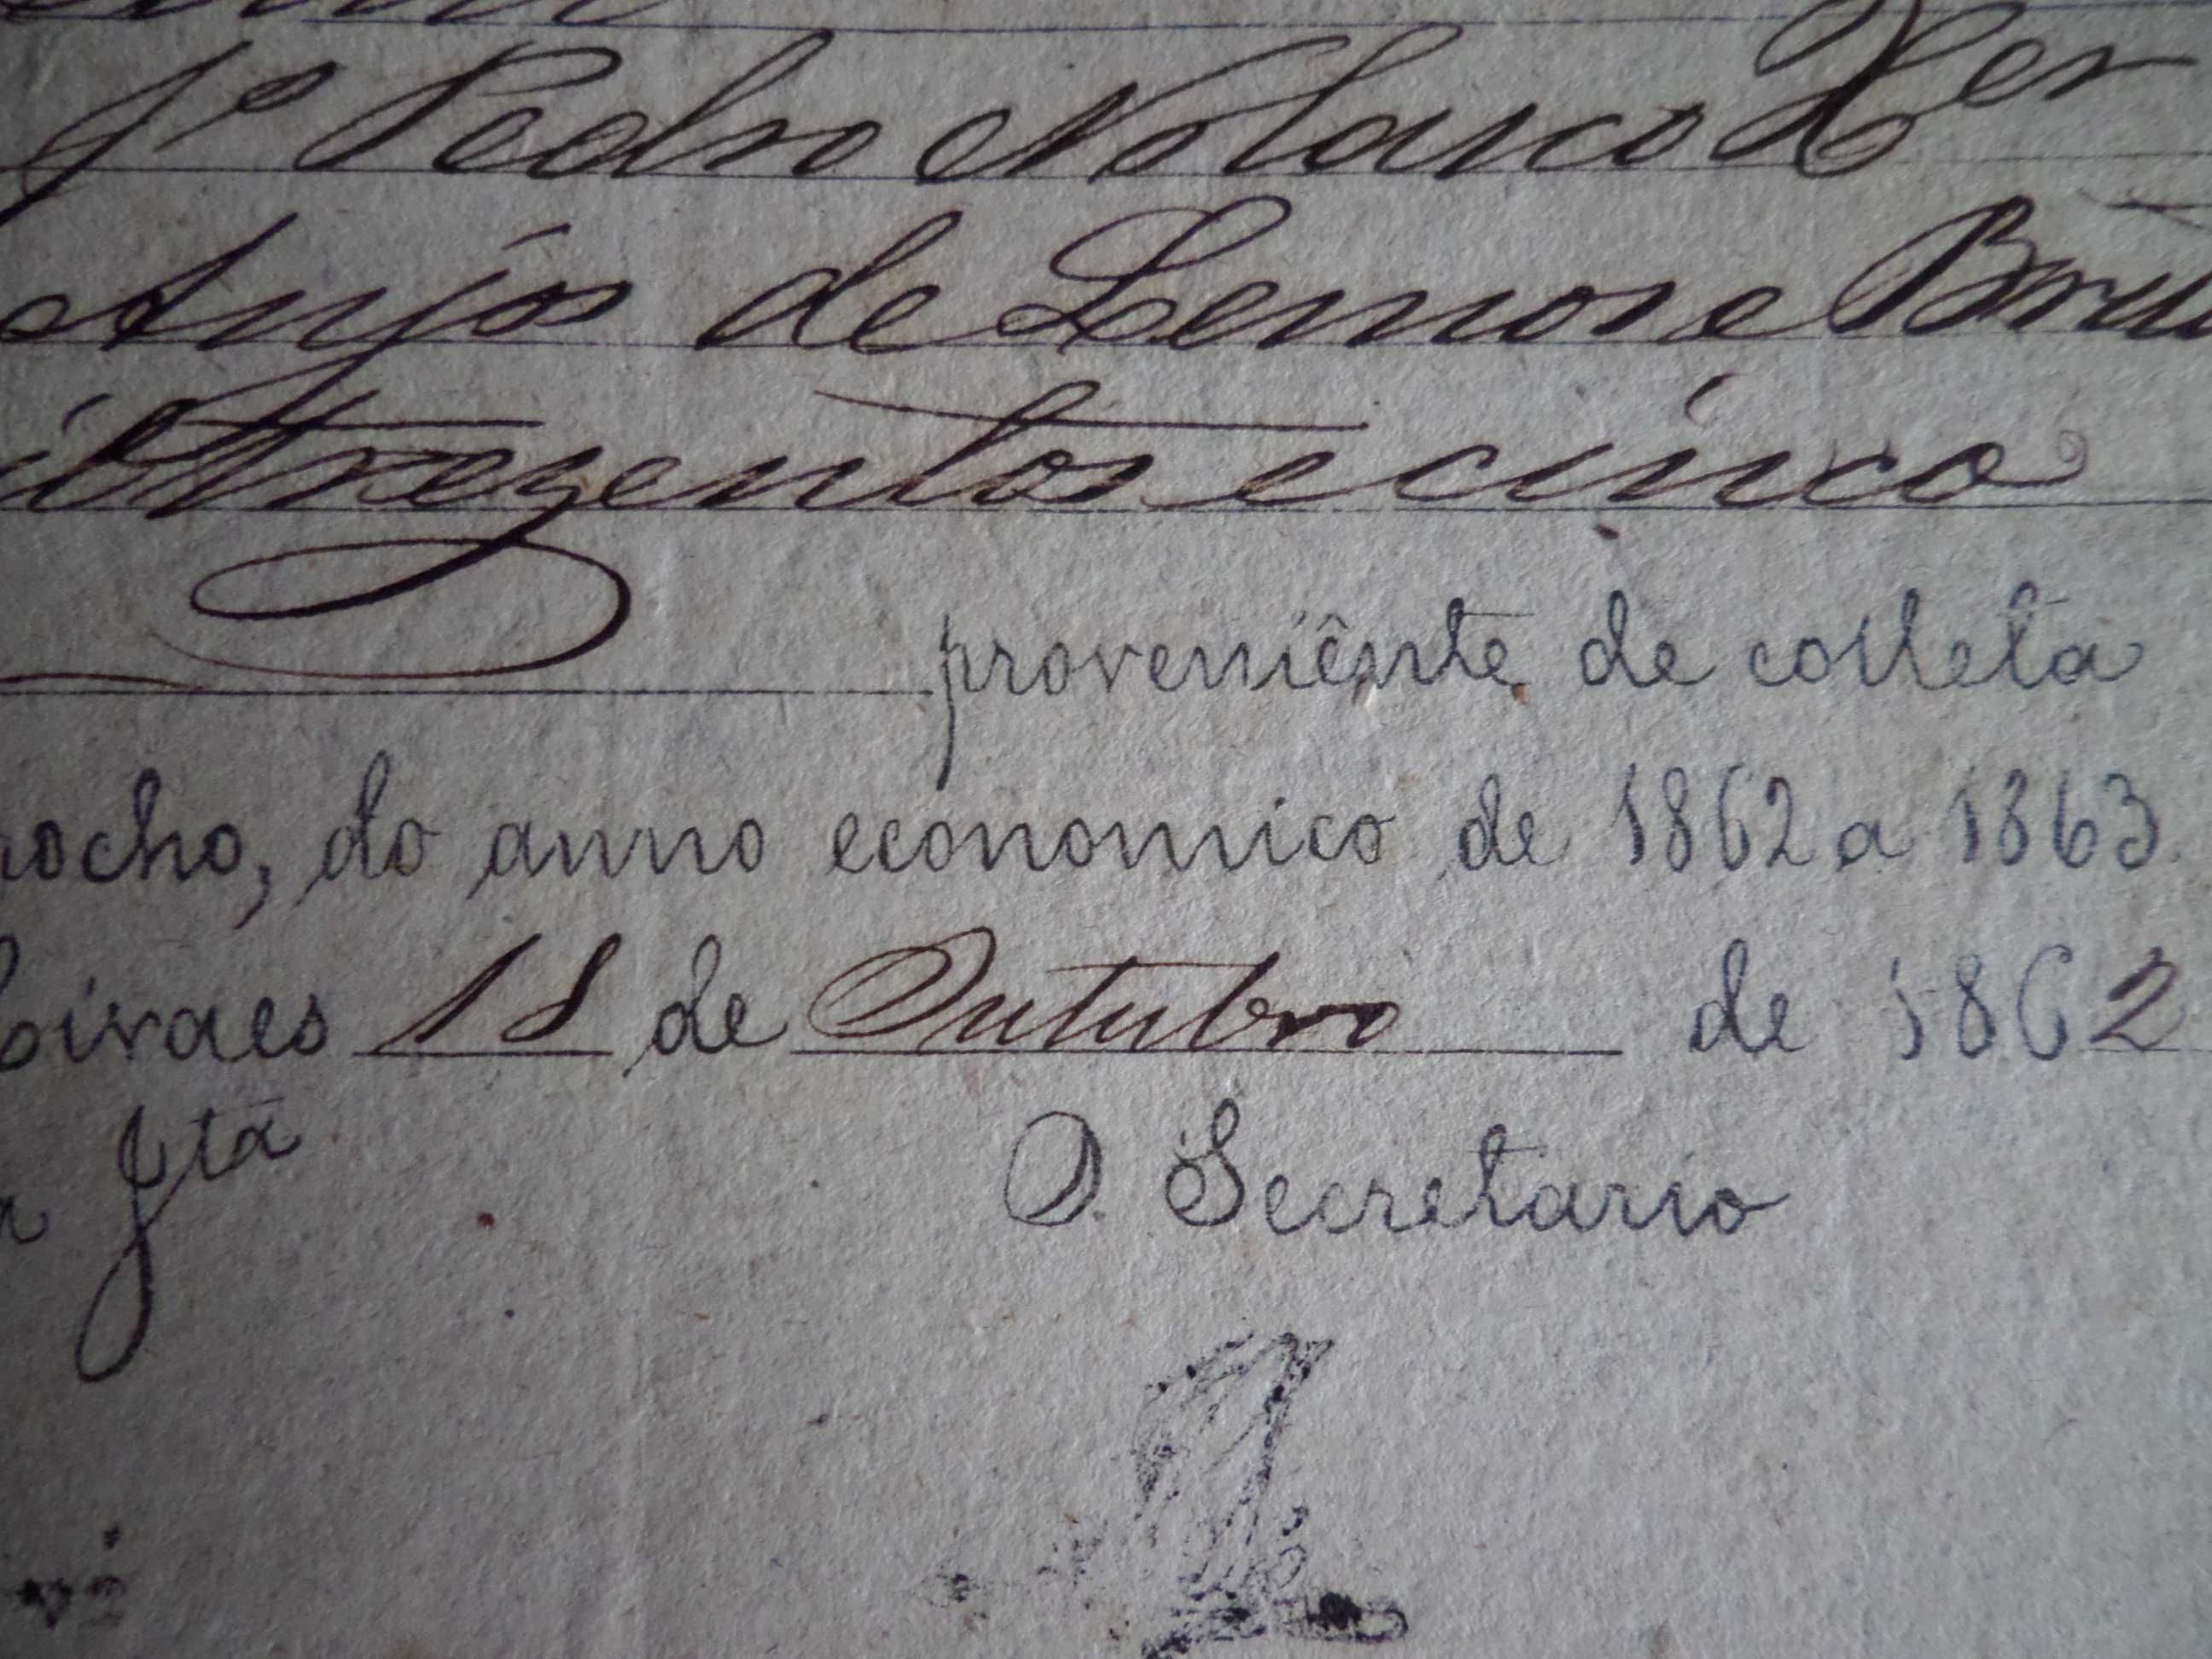 Jº Pedro Nolasco Xer
Anjos de Lemos e Bru
trezentos e cinco
proveniênte de colleta
rocho, do anno economico de 1862 a 1863.
biraes 18 de Outubro de 1862
Jta
O Secretario